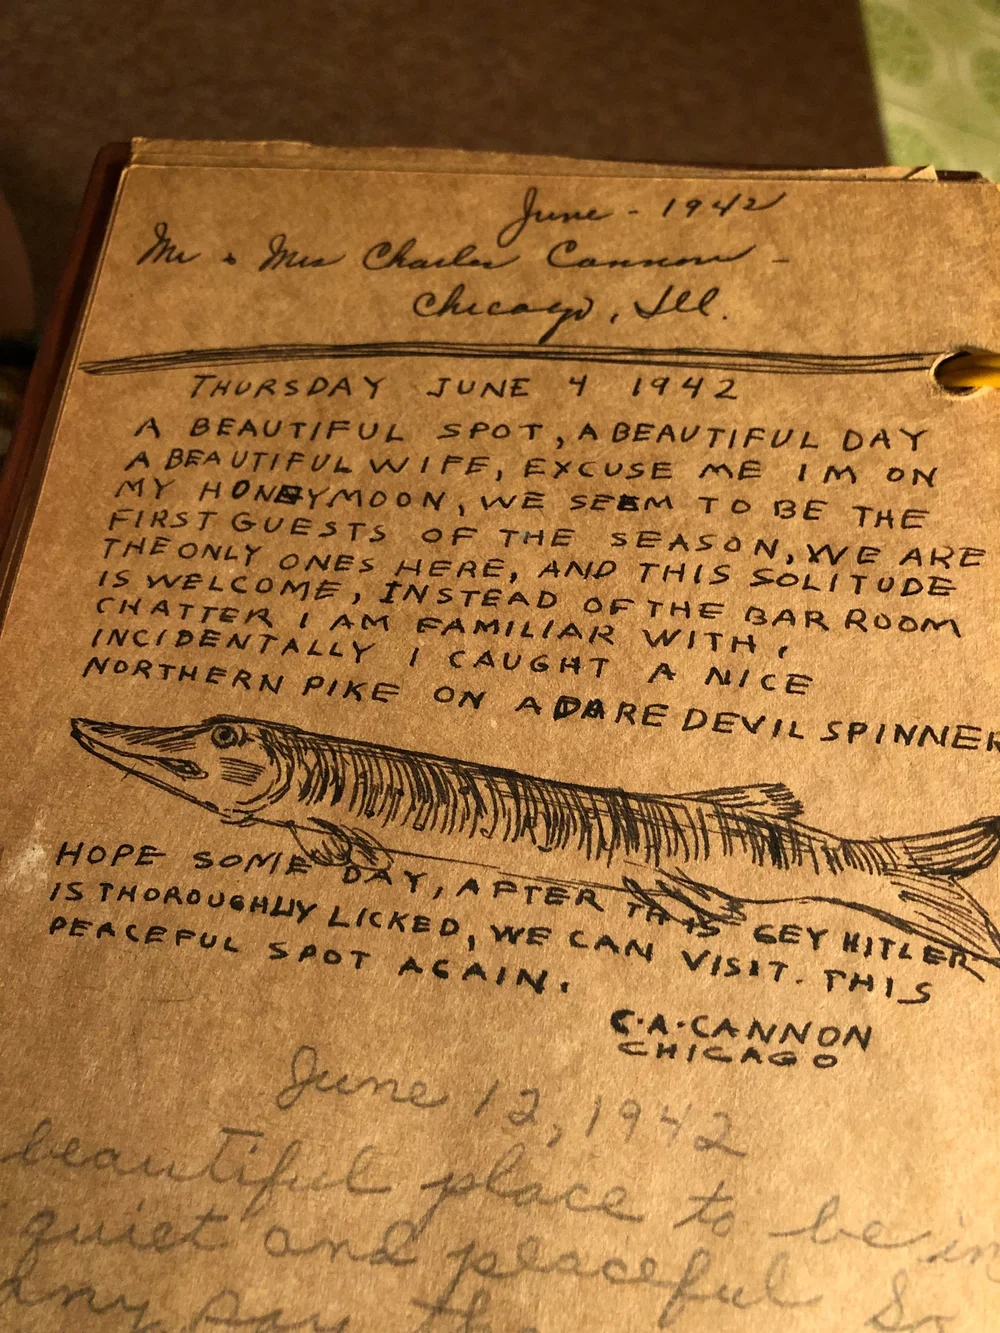 June - 1942
Mr & Mrs Charles Cannon -
Chicago, Ill.
THURSDAY JUNE 4 1942
A BEAUTIFUL SPOT, A BEAUTIFUL DAY
A BEAUTIFUL WIFE, EXCUSE ME IM ON
MY HONEYMOON, WE SEEM TO BE THE
FIRST GUESTS OF THE SEASON, WE ARE
THE ONLY ONES HERE, AND THIS SOLITUDE
IS WELCOME, INSTEAD OF THE BAR ROOM
CHATTER I AM FAMILIAR WITH,
INCIDENTALLY I CAUGHT A NICE
NORTHERN PIKE ON A DARE DEVIL SPINNER
HOPE SOME DAY, AFTER THIS GEY HITLER
IS THOROUGHLY LICKED, WE CAN VISIT. THIS
PEACEFUL SPOT AGAIN.
C.A.CANNON
CHICAGO
June 12, 1942
beautiful place to be in
quiet and placeful So
say